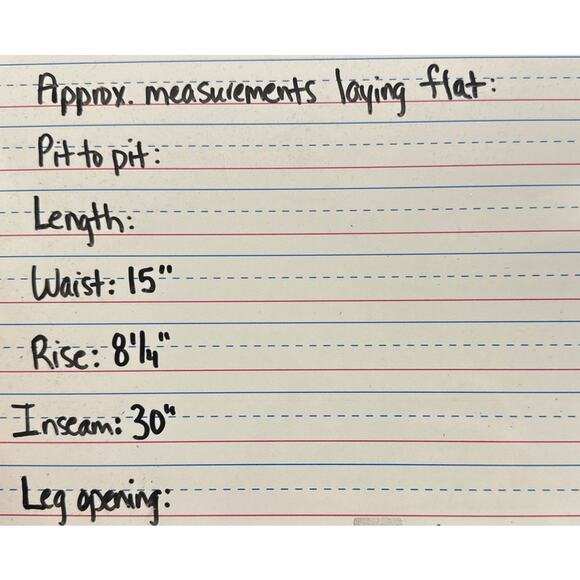 Approx. measurements laying flat:
Pit to pit:
Length:
Waist: 15"
Rise: 8 1/4"
Inseam: 30"
Leg opening: